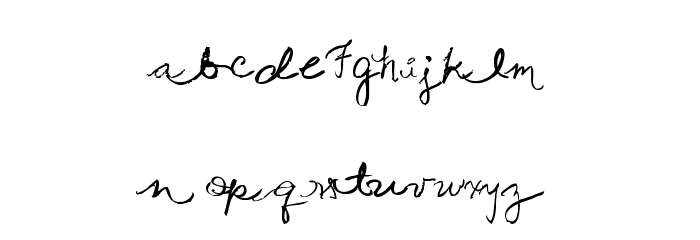 abcdeFghijklm
n opqrstuvwxyz